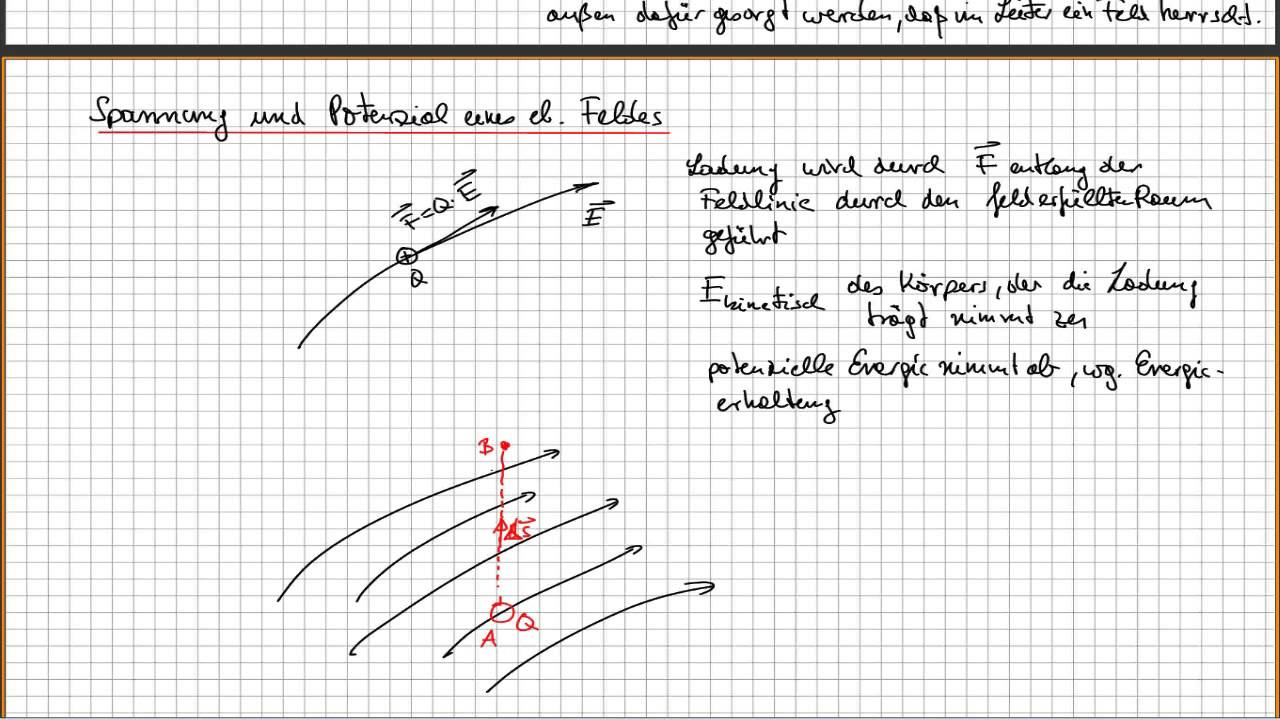 außen dafür gesorgt werden, daß im Leiter ein Feld herrscht.
Spannung und Potenzial eines el. Feldes
Ladung wird durch F⃗ entlang der
Feldlinie durch den felderfüllten Raum
geführt
F⃗=Q·E⃗
E⃗
Q
E kinetisch des Körpers, der die Ladung
trägt nimmt zu
potenzielle Energie nimmt ab, wg. Energie-
erhaltung
B
Δs⃗
Q
A